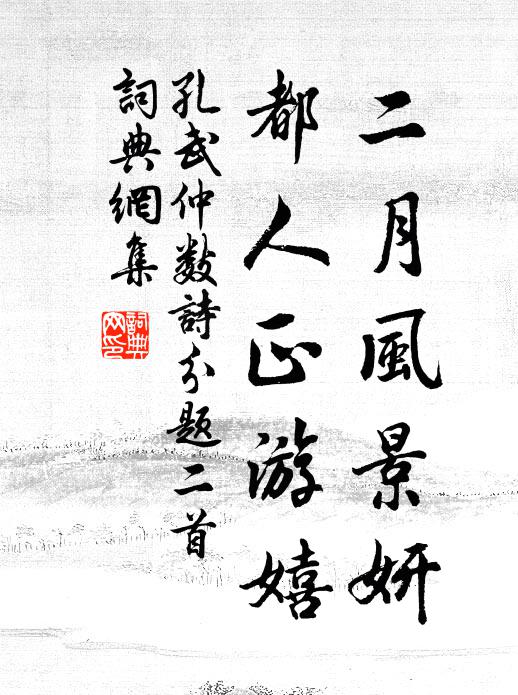 二月風景妍
都人正游嬉
孔武仲數詩分題二首
詞典網集
詞典網印